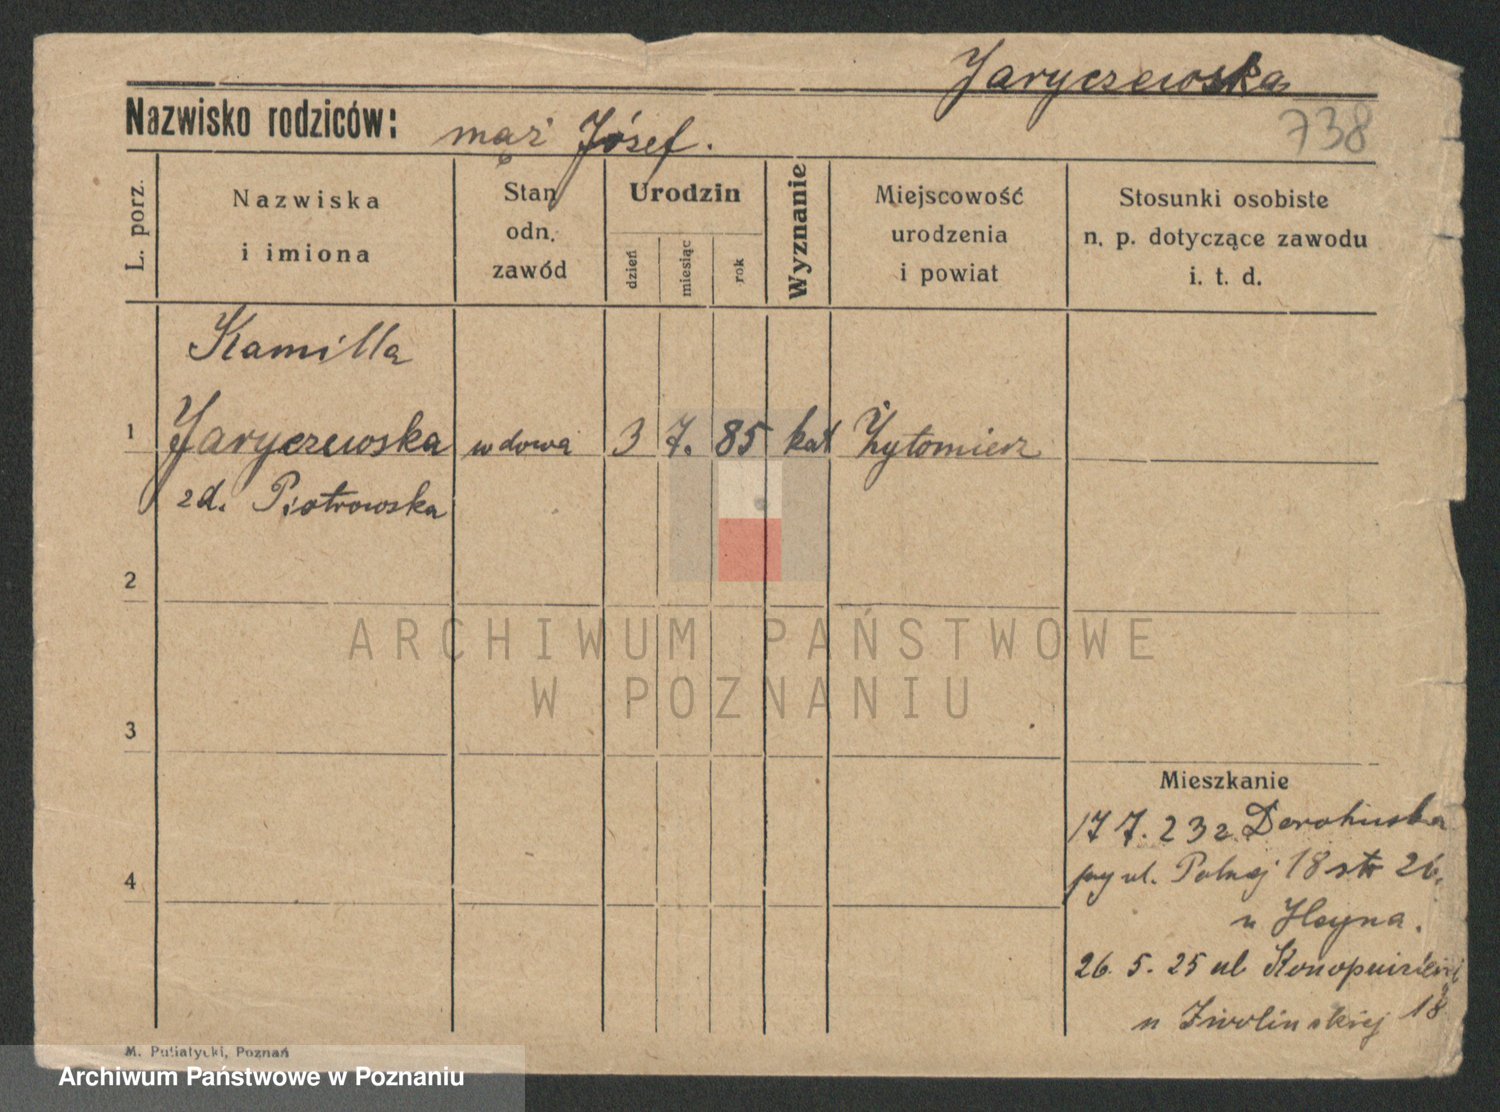 Jaryczewska
738
Nazwisko rodziców: mąż Józef.
L. porz.
Nazwiska
i imiona
Stan
odn.
zawód
Urodzin
dzień
miesiąc
rok
Wyznanie
Miejscowość
urodzenia
i powiat
Stosunki osobiste
n. p. dotyczące zawodu
i. t. d.
Kamilla
1 Jaryczewska wdowa 3 7. 85 kat Żytomierz
zd. Piotrowska
2
3
4
ARCHIWUM PAŃSTWOWE
W POZNANIU
Mieszkanie
17 7. 23 z
ul. Polnej 18 26.
u Heyna.
26. 5. 25 ul
u Zwolinskiej 18
M. Putiatycki, Poznań
Archiwum Państwowe w Poznaniu